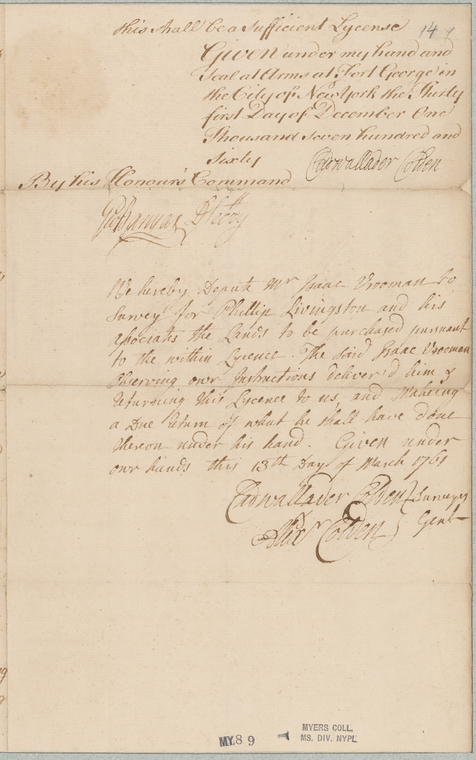 this shall be a sufficient Lycense 14
Given under my hand and
Seal at Arms at Fort George in
the City of New York the Thirty
first Day of December One
Thousand seven hundred and
Sixty Cadwallader Colden
By his Honour's Command
Gw Banyar D Secry
We hereby Depute Mr Isaac Vrooman to
survey for Phillip Livingston and his
asociats the Lands to be purchased pursuant
to the within Lycence. The said Isaac Vrooman
Observing our Instructions deliver'd him &
returning this Lycence to us, and Making
a Due return of what he shall have done
thereon under his hand. Given under
our hands this 13th Day of March 1761
Cadwallader Colden } Surveyrs
Alexr Colden } Genl
MY 89
MYERS COLL.
MS. DIV. NYPL